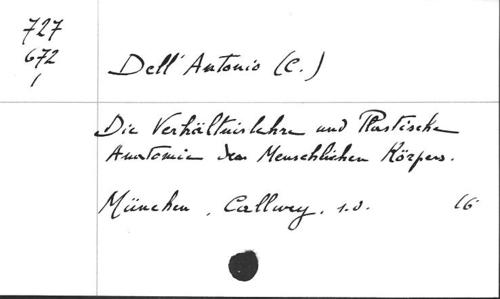 727
672
1
Dell'Antonio (C.)
Die Verhältnislehre und Plastische
Anatomie des Menschlichen Körpers.
München, Callwey, s.d. 16-